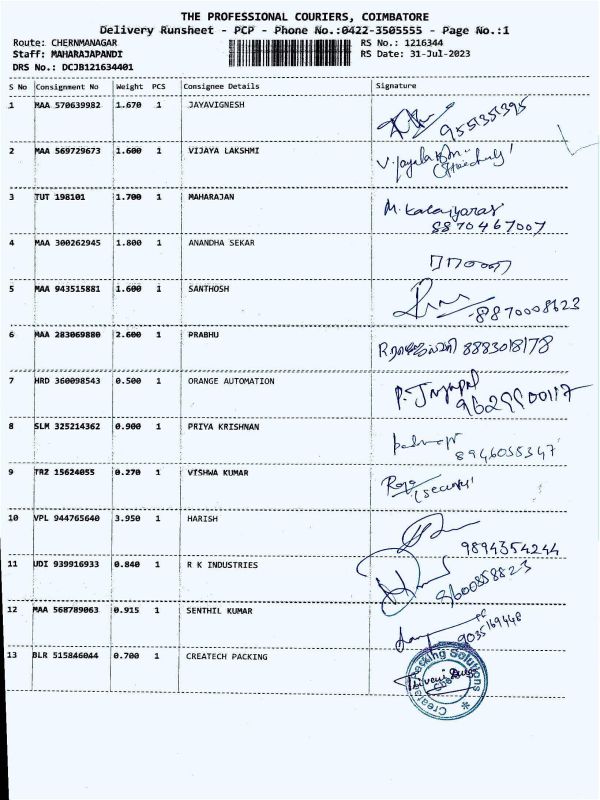 THE PROFESSIONAL COURIERS, COIMBATORE
Delivery Runsheet - PCP - Phone No.:0422-3505555 - Page No.:1
Route: CHERNMANAGAR RS No.: 1216344
Staff: MAHARAJAPANDI RS Date: 31-Jul-2023
DRS No.: DCJB121634401
S No Consignment No Weight PCS Consignee Details Signature
1 MAA 570639982 1.670 1 JAYAVIGNESH
9551351395
2 MAA 569729673 1.600 1 VIJAYA LAKSHMI
3 TUT 198101 1.700 1 MAHARAJAN
M. Kalaiyarasi
8870467007
4 MAA 300262945 1.800 1 ANANDHA SEKAR
5 MAA 943515881 1.600 1 SANTHOSH
8870008623
6 MAA 283069880 2.600 1 PRABHU
8883018178
7 HRD 360098543 0.500 1 ORANGE AUTOMATION
P. Jayapal
8 SLM 325214362 0.900 1 PRIYA KRISHNAN
8946055347
9 TRZ 15624055 0.270 1 VISHWA KUMAR
Raja
(security)
10 VPL 944765640 3.950 1 HARISH
9894354244
11 UDI 939916933 0.840 1 R K INDUSTRIES
9600858823
12 MAA 568789063 0.915 1 SENTHIL KUMAR
9035169448
13 BLR 515846044 0.700 1 CREATECH PACKING
Createch Packing Solutions